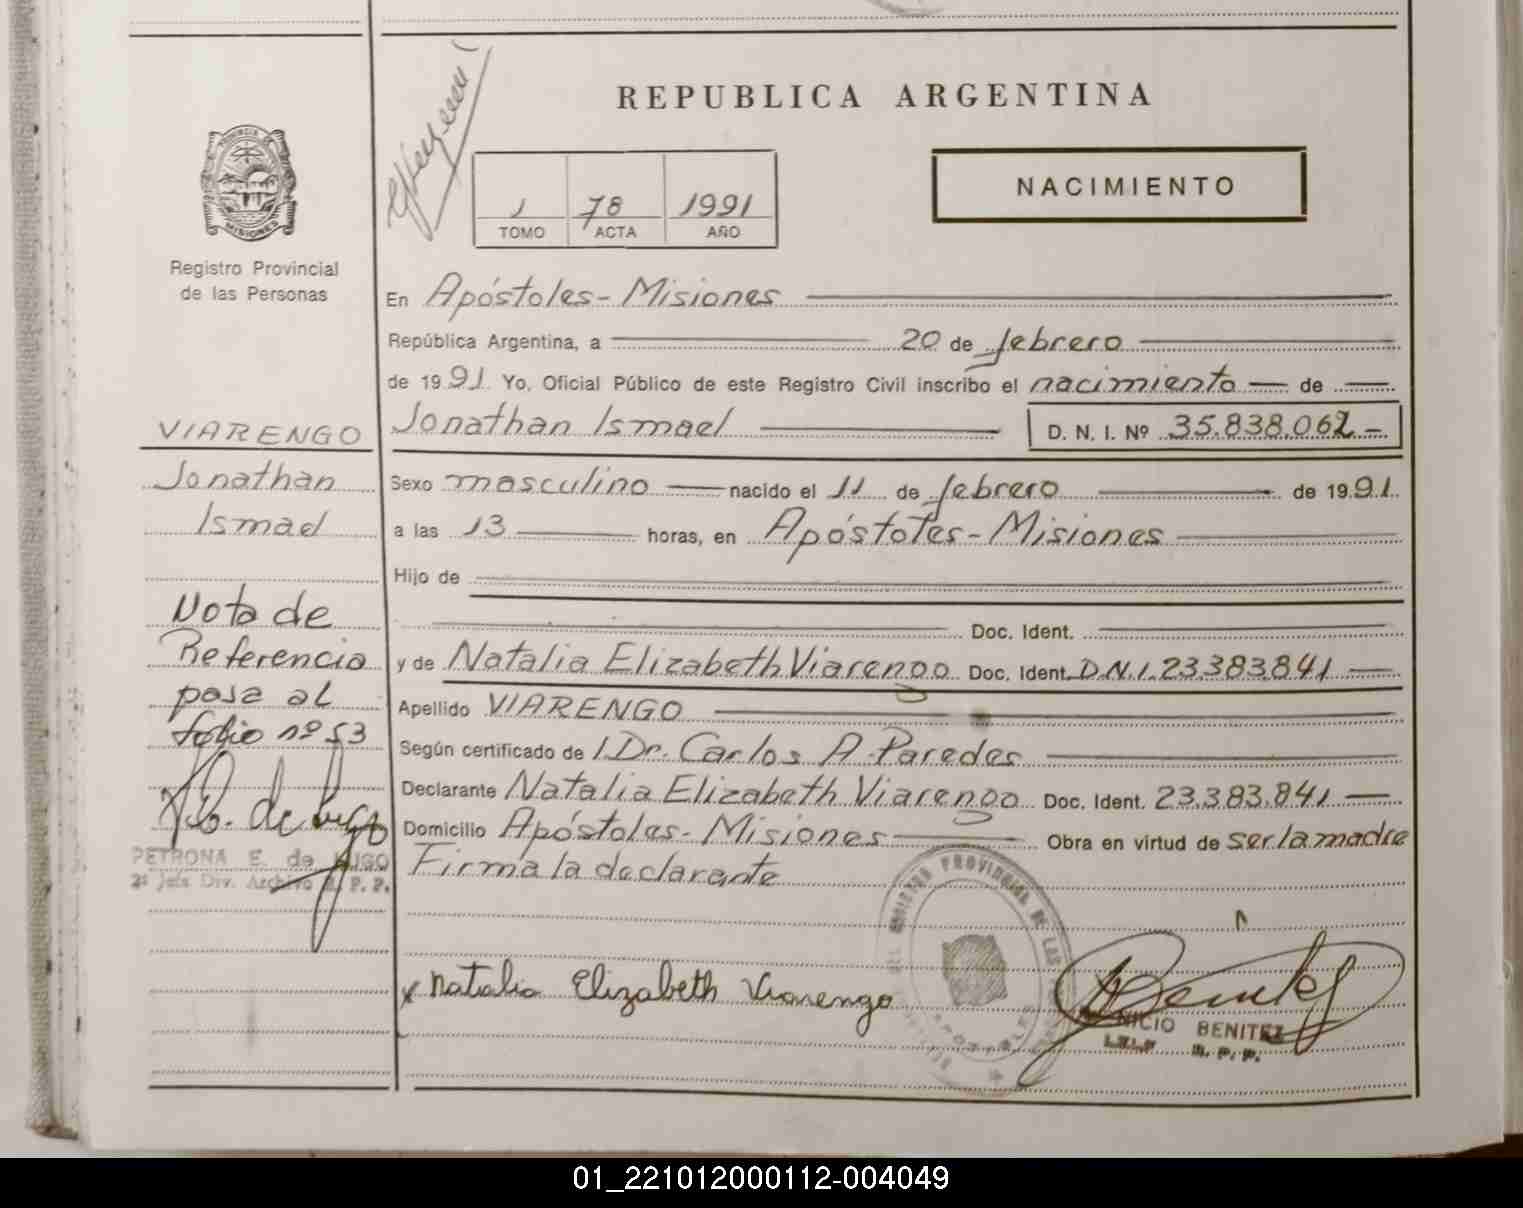 REPUBLICA ARGENTINA
NACIMIENTO
1 78 1991
TOMO ACTA AÑO
PROVINCIA DE
MISIONES
Registro Provincial
de las Personas
En Apóstoles - Misiones
República Argentina, a 20 de febrero
de 1991. Yo, Oficial Público de este Registro Civil inscribo el nacimiento de
Jonathan Ismael D. N. I. Nº 35.838.062 -
Sexo masculino nacido el 11 de febrero de 1991.
a las 13 horas, en Apóstoles - Misiones
Hijo de
Doc. Ident.
y de Natalia Elizabeth Viarengo Doc. Ident. D.N.I. 23.383.841
Apellido VIARENGO
Según certificado de 1. Dr. Carlos A. Paredes
Declarante Natalia Elizabeth Viarengo Doc. Ident. 23.383.841
Domicilio Apóstoles - Misiones Obra en virtud de ser la madre
Firma la declarante
x Natalia Elizabeth Viarengo
BENITEZ
R. P. P.
VIARENGO
Jonathan
Ismael
Nota de
Referencia
pasa al
folio nº 53
PETRONA E. de LUGO
2ª Jefe Div. Archivo R. P. P.
REGISTRO PROVINCIAL DE LAS
01_221012000112-004049